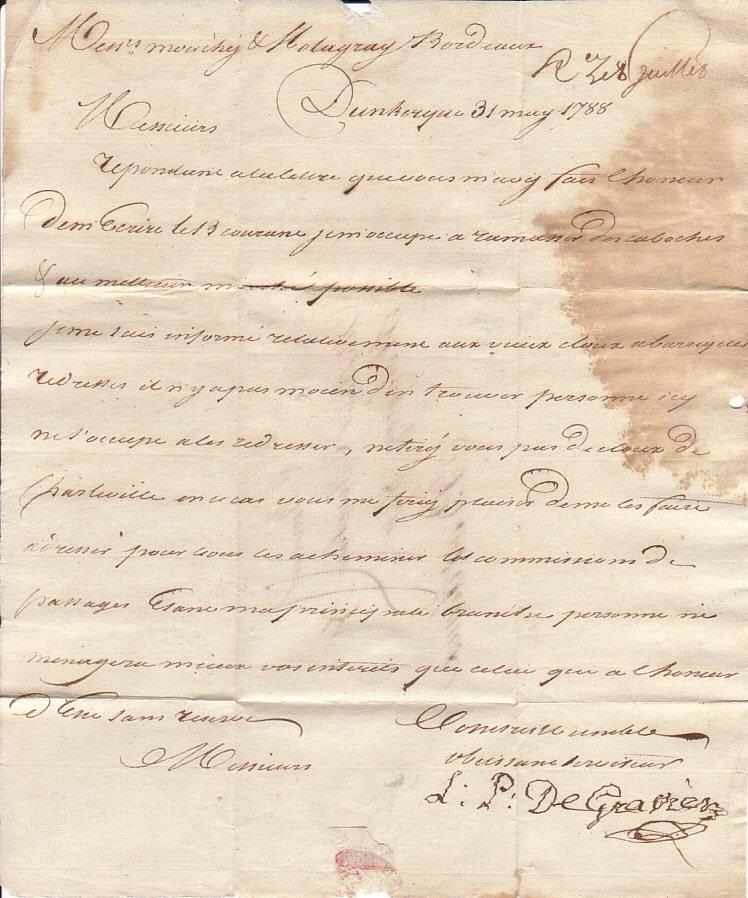 Mess.rs mouchy & Bordeaux
R Le 8 juillet
Dunkerque 31 may 1788
Messieurs
repondant a la lettre que vous mavez fait lhoneur
dem Ecrire le 13 courant jem occupe a ramasser des caboches
& au meilleur marché possible
je me suis informé relativement aux vieux cloux a bariques
redresser il n'y a pas moien d'en trouver personne icy
ne s'occupe a les redresser, ne tiréz vous pas de cloux de
Charleville en ce cas vous me feriez plaisir de me les faire
adresser pour vous les acheminer les commissions de
passages Etant ma principale branche personne ne
menagera mieux vos interets que celui qui a lhoneur
d'Etre sans reserve
Messieurs
Votre tres humble
obeissant serviteur
L: P: DeGravier